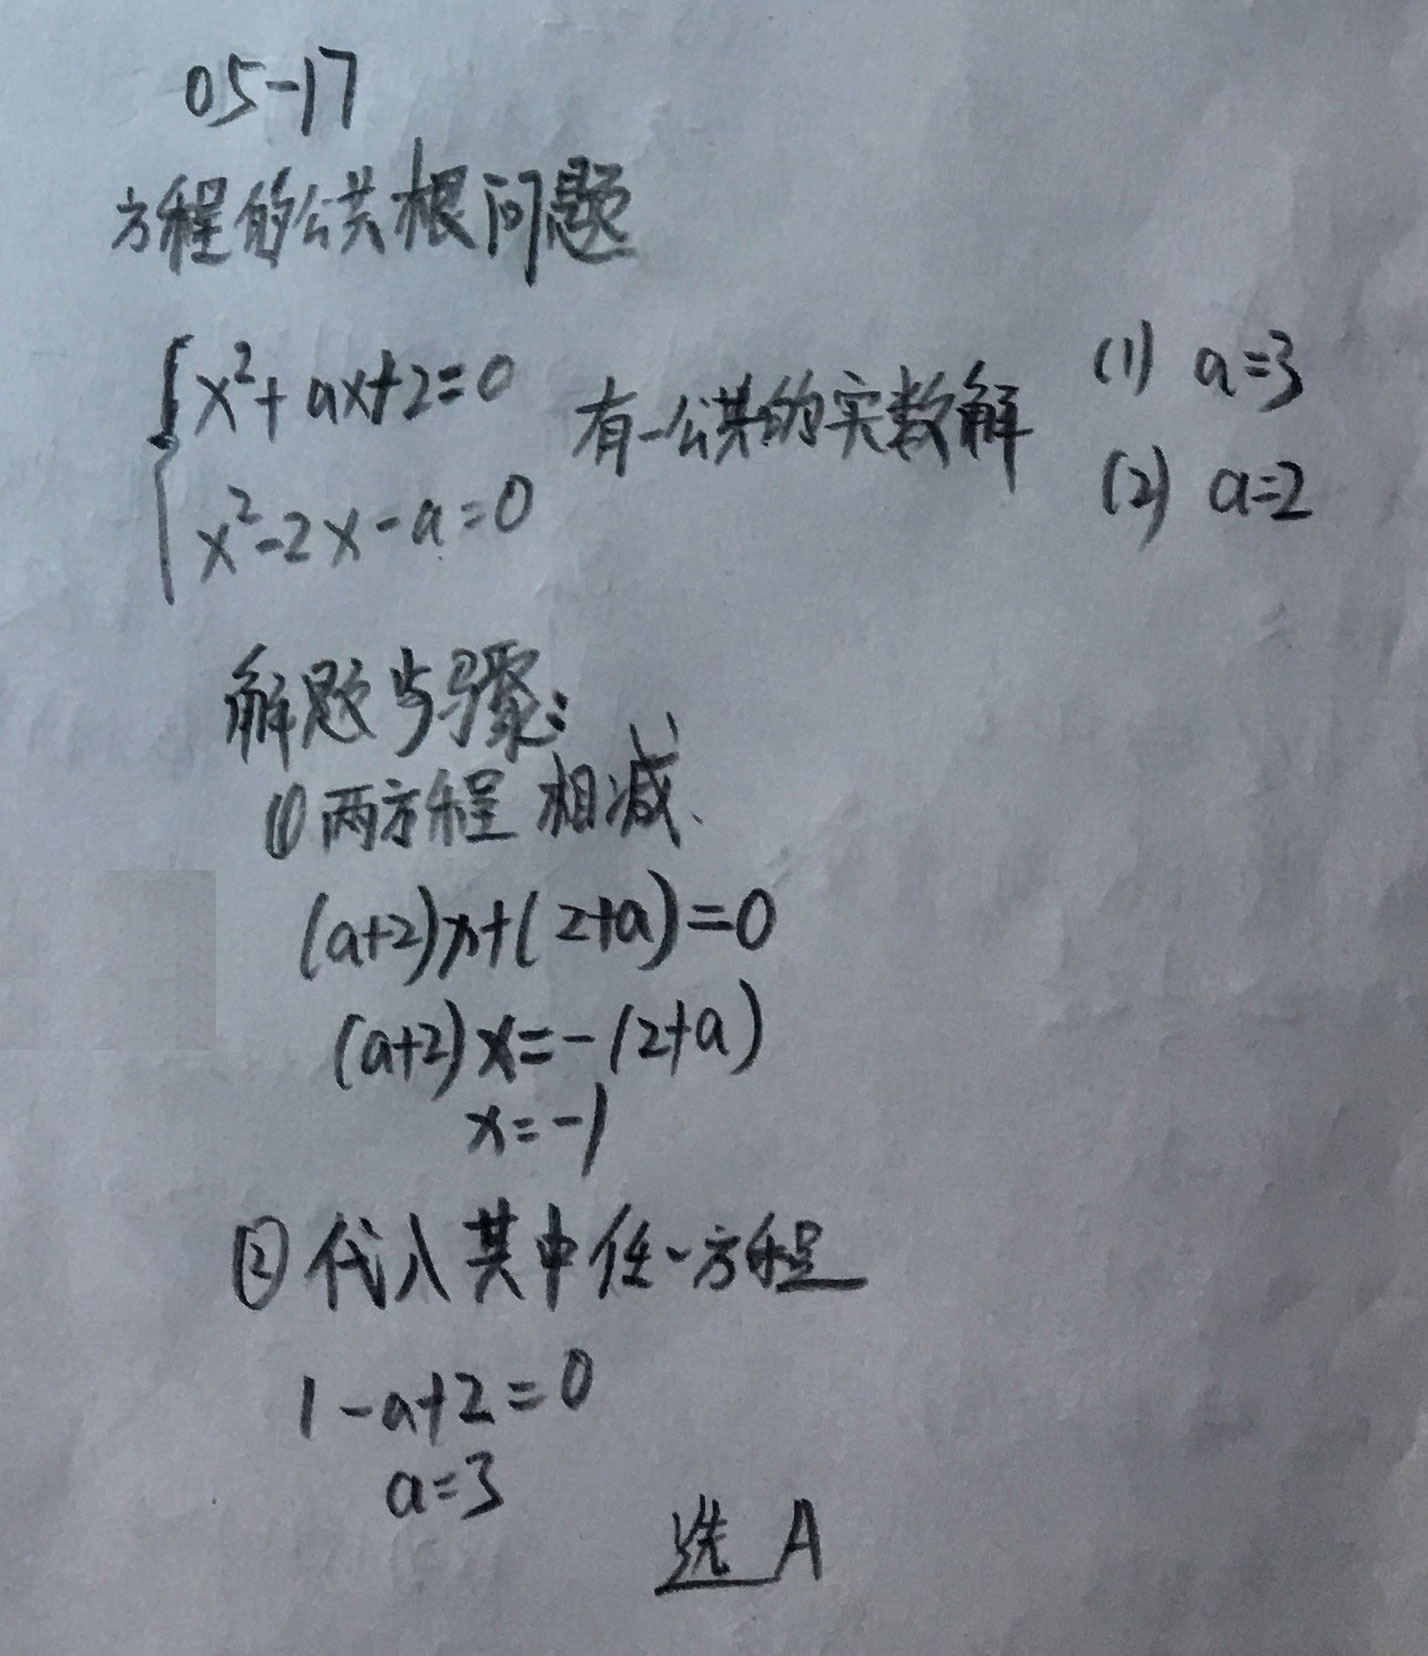 05-17
方程的公共根问题
x²+ax+2=0 有一公共的实数解 (1) a=3
x²-2x-a=0 (2) a=2
解题步骤:
① 两方程相减、
(a+2)x+(2+a)=0
(a+2)x=-(2+a)
x=-1
② 代入其中任一方程
1-a+2=0
a=3
选 A